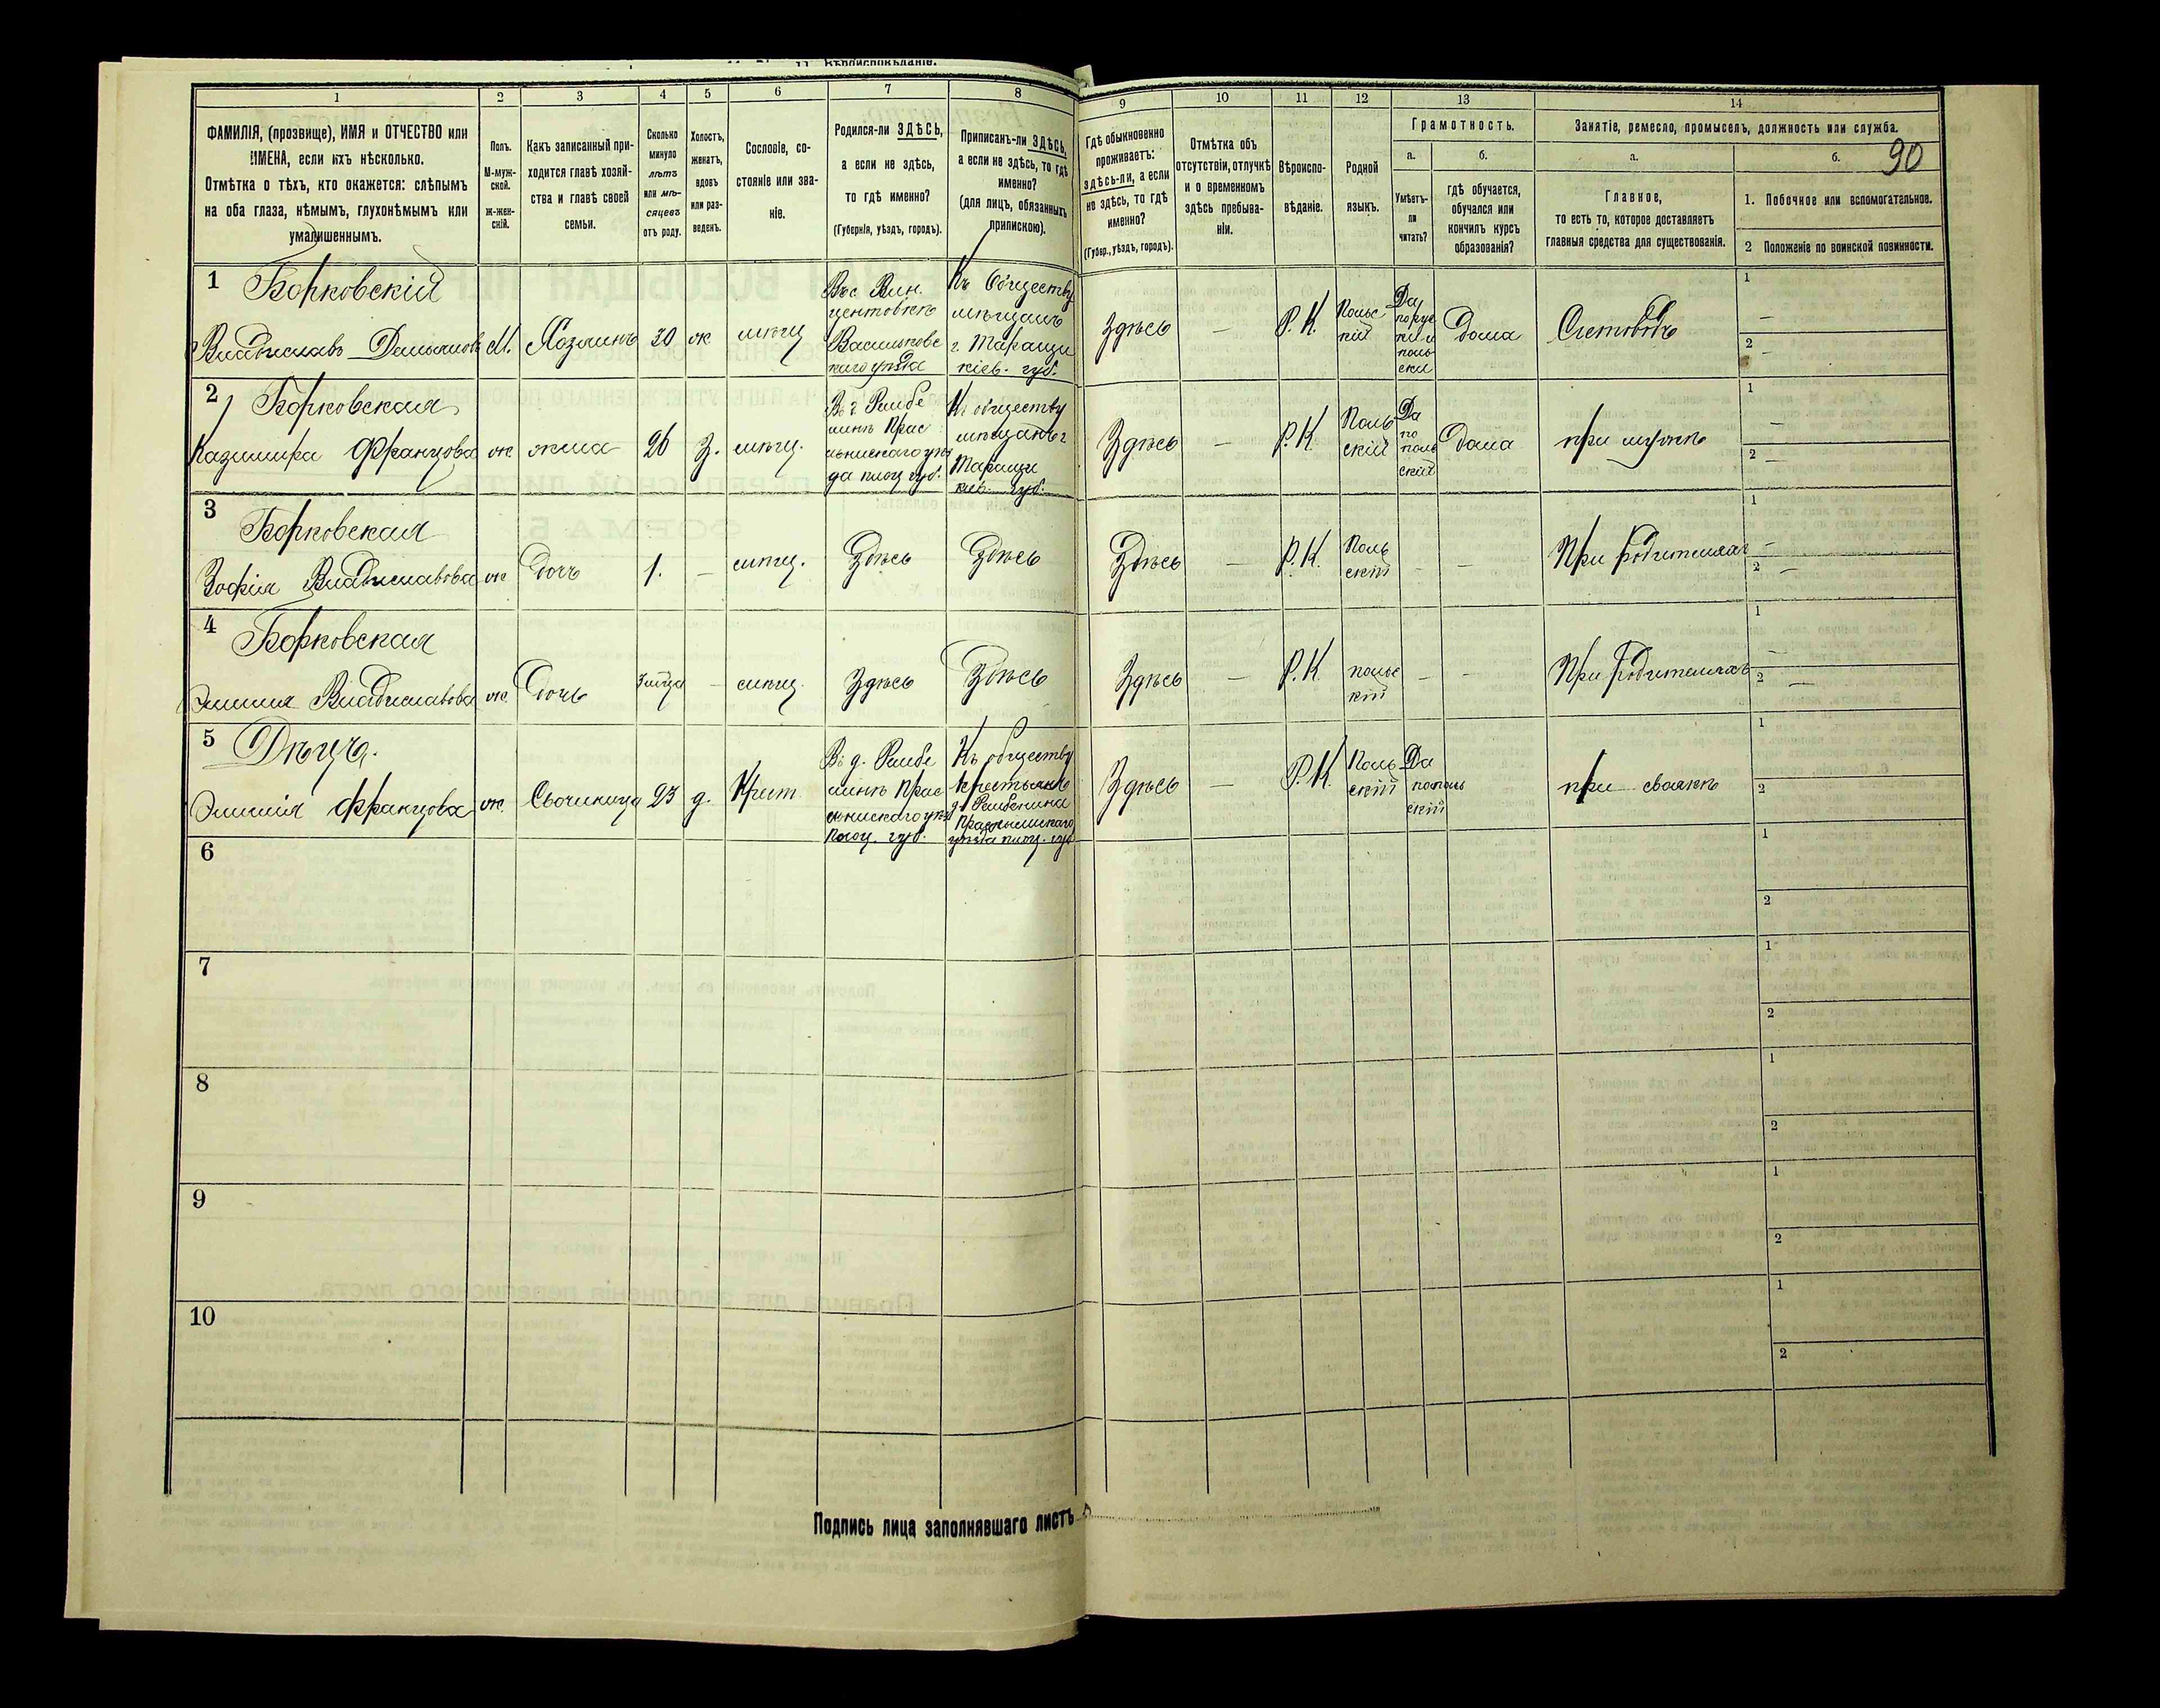 11. Вѣроисповѣданіе.
1 2 3 4 5 6 7 8 9 10 11 12 13 14
90
ФАМИЛІЯ, (прозвище), ИМЯ и ОТЧЕСТВО или
ИМЕНА, если ихъ нѣсколько.
Отмѣтка о тѣхъ, кто окажется: слѣпымъ
на оба глаза, нѣмымъ, глухонѣмымъ или
умалишеннымъ.
Полъ.
М-муж-
ской.
ж-жен-
скій.
Какъ записанный при-
ходится главѣ хозяй-
ства и главѣ своей
семьи.
Сколько
минуло
лѣтъ
или мѣ-
сяцевъ
отъ роду.
Холостъ,
женатъ,
вдовъ
или раз-
веденъ.
Сословіе, со-
стояніе или зва-
ніе.
Родился-ли ЗДѢСЬ,
а если не здѣсь,
то гдѣ именно?
(Губернія, уѣздъ, городъ).
Приписанъ-ли ЗДѢСЬ,
а если не здѣсь, то гдѣ
именно?
(для лицъ, обязанныхъ
припискою).
Гдѣ обыкновенно
проживаетъ:
здѣсь-ли, а если
не здѣсь, то гдѣ
именно?
(Губер., уѣздъ, городъ).
Отмѣтка объ
отсутствіи, отлучкѣ
и о временномъ
здѣсь пребыва-
ніи.
Вѣроиспо-
вѣданіе.
Родной
языкъ.
Грамотность.
а.
Умѣетъ-
ли
читать?
б.
гдѣ обучается,
обучался или
кончилъ курсъ
образованія?
Занятіе, ремесло, промыселъ, должность или служба.
а.
Главное,
то есть то, которое доставляетъ
главныя средства для существованія.
б.
1. Побочное или вспомогательное.
2 Положеніе по воинской повинности.
1
Борковскій
Владиславъ
М.
Хозяинъ
30
ж
мѣщ
Въ с. Вин
центовкѣ
Васильковс
каго уѣзда
Къ Обществу
мѣщанъ
г. Таращи
кіев. губ.
Здѣсь
—
Р. К.
Польс
кій
Да
по рус
ки и
поль
ски
дома
Счетоводъ
1 —
2 —
2
Борковская
Казимира Францова
ж
жена
26
З.
мѣщ.
Къ обществу
мѣщанъ г
Таращи
кіев. губ.
Здѣсь
—
Р. К
Поль
скій
Да
по
поль
ски
дома
при мужѣ
1 —
2 —
3
Борковская
Зофія Владиславова
ж
дочь
1.
—
мѣщ.
Здѣсь
Здѣсь
Здѣсь
—
Р. К.
Поль
скій
—
—
При родителяхъ
1 —
2 —
4
Борковская
Владиславова
ж.
Дочь
—
мѣщ.
Здѣсь
Здѣсь
Здѣсь
—
Р. К
польс
кій
—
—
При родителяхъ
1 —
2 —
5
Францова
ж.
23
д.
Крест.
Къ обществу
крестьянъ
Здѣсь
—
Р. К.
Поль
скій
Да
по поль
ски
при своякѣ
1
2
6
1
2
7
1
2
8
1
2
9
1
2
10
1
2
Подпись лица заполнявшаго листъ